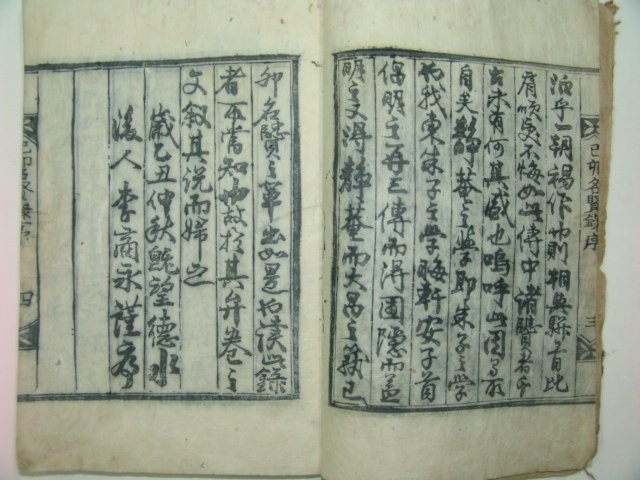 泊乎一朝禍作而則相與駢首比
肩順受不悔如此傳中諸賢者乎
古未有何其盛也嗚呼此固有所
自矣靜菴之學即朱子之學
也我東朱子之學晦軒安子首
倡明之再三傳而得圃隱而益
明之又得靜菴而大昌之哉己
己卯名賢錄序
三
卯名賢之輩出如是也讀此錄
者不當知也故於其弁卷之
文敍其說而歸之
歲乙丑仲秋旣望德水
後人李商永謹序
四